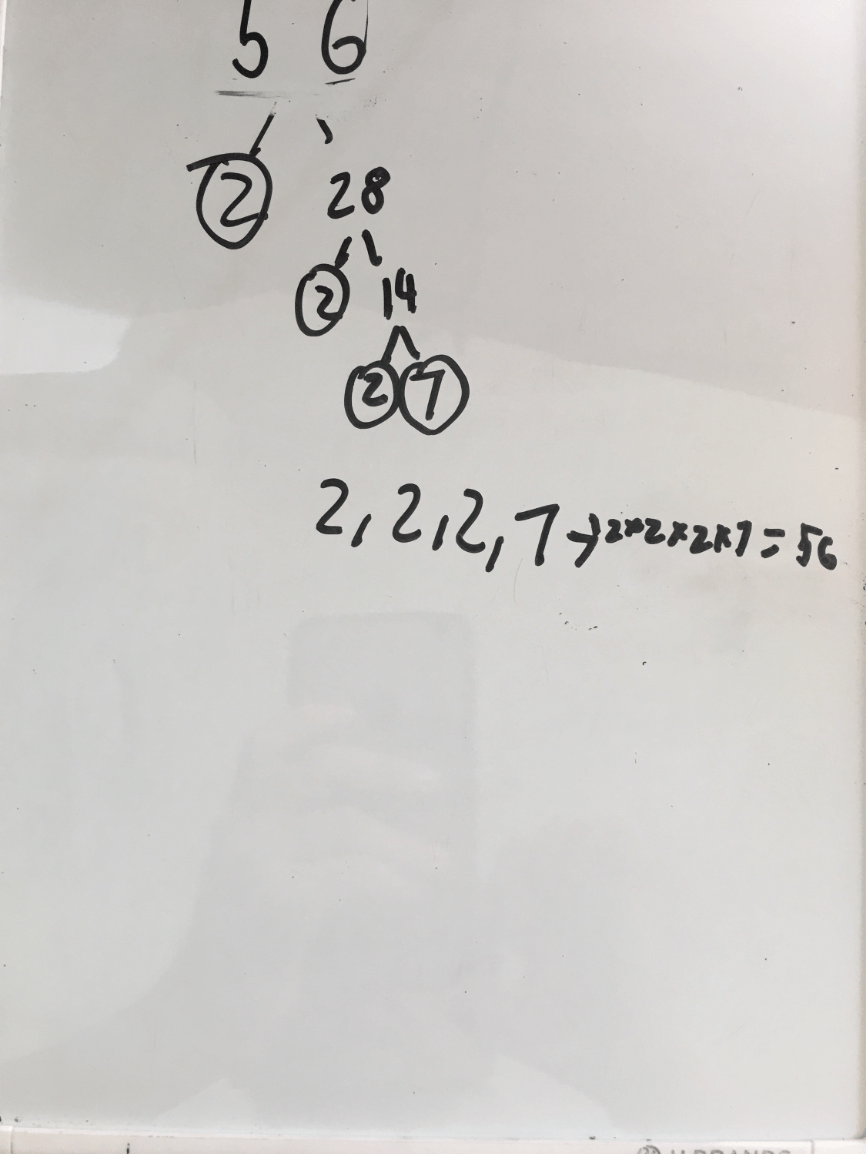 56
2 28
2 14
2 7
2, 2, 2, 7 → 2×2×2×7 = 56